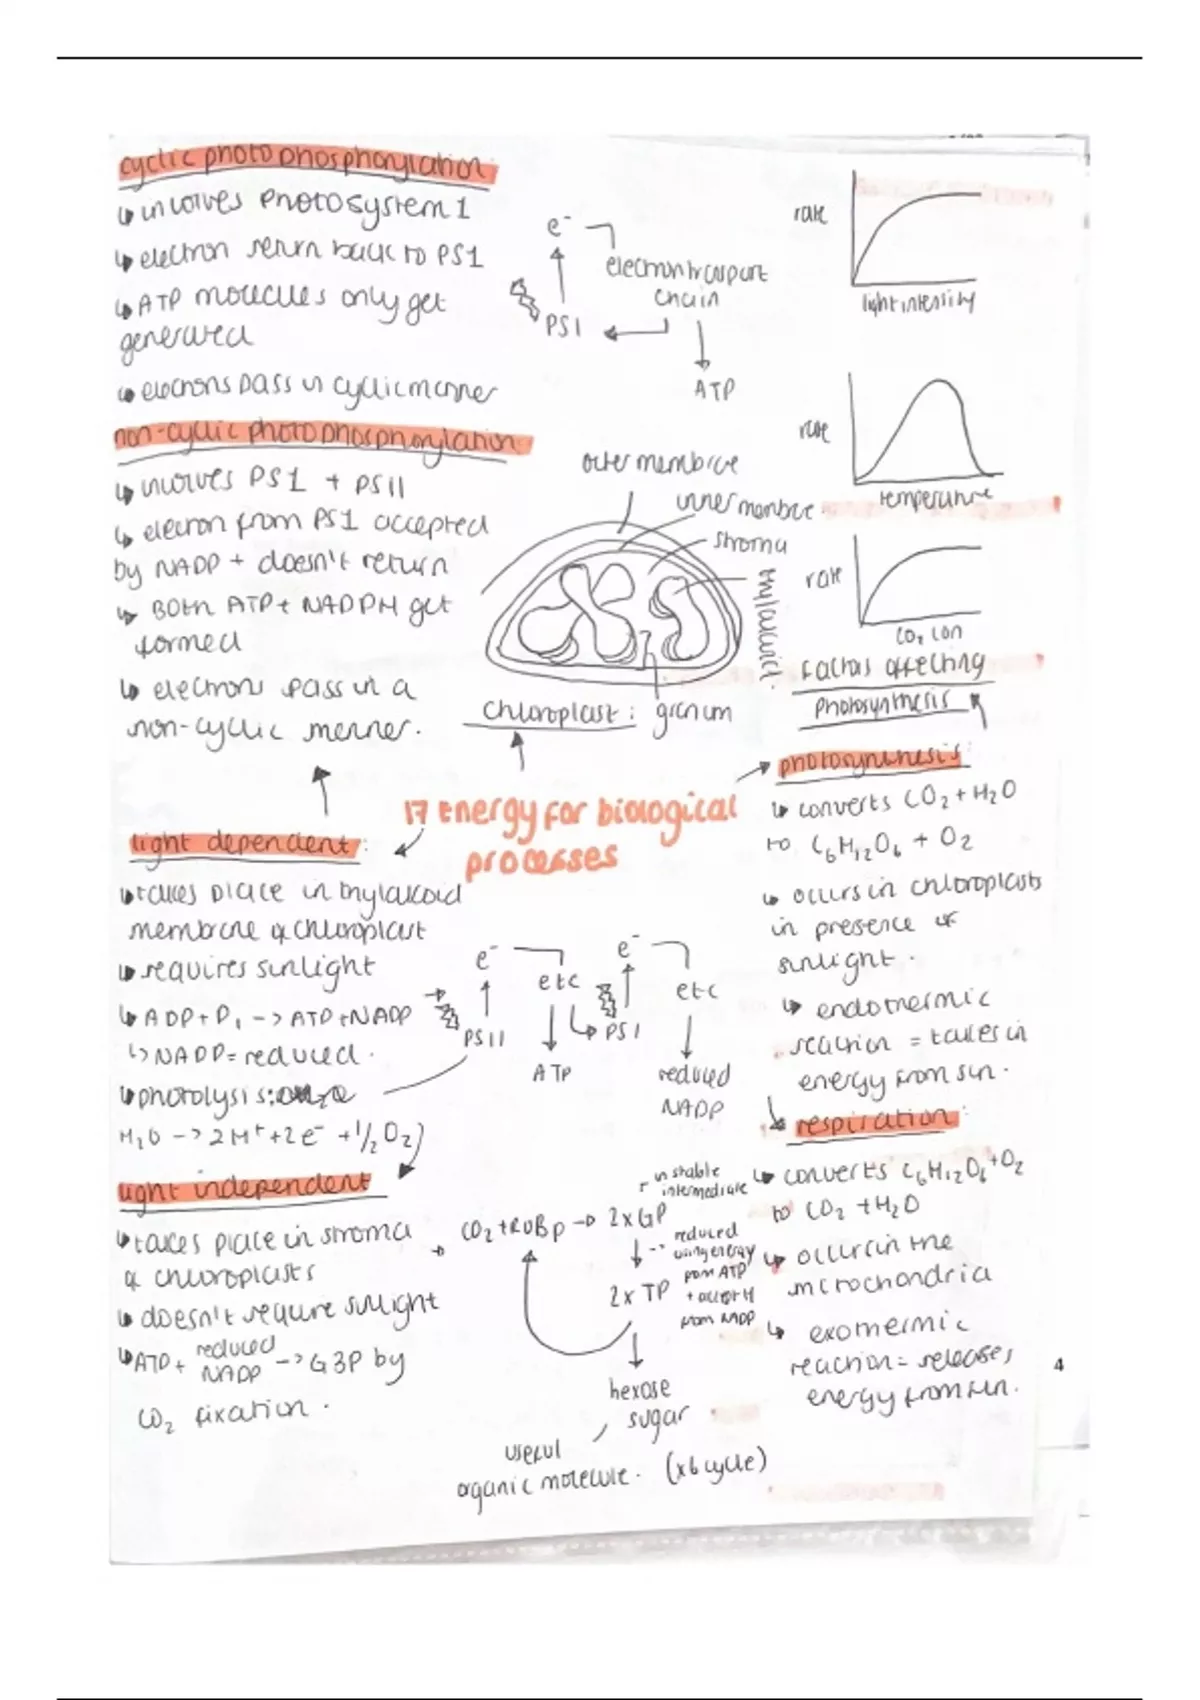 cyclic photophosphorylation:
↳ involves Photosystem 1
↳ electron return back to PS1
↳ ATP molecules only get
generated
↳ electrons pass in cyclic manner
e⁻
electron transport
chain
PS1
ATP
rate
light intensity
rate
temperature
rate
CO₂ con
factors affecting
photosynthesis
non-cyclic photophosphorylation:
↳ involves PS1 + PSII
↳ electron from PS1 accepted
by NADP + doesn't return
↳ Both ATP + NADPH get
formed
↳ electrons pass in a
non-cyclic manner.
outer membrane
inner membrane
stroma
thylakoid
Chloroplast: granum
17 Energy for biological
processes
light dependent:
↳ takes place in thylakoid
membrane of chloroplast
↳ requires sunlight
↳ ADP + Pi -> ATP + NADP
↳ NADP = reduced.
↳ photolysis:
H₂O -> 2H⁺ + 2e⁻ + 1/2 O₂)
e⁻
etc
PSII
ATP
e⁻
etc
PSI
reduced
NADP
light independent
↳ takes place in stroma
of chloroplasts
↳ doesn't require sunlight
↳ ATP + reduced NADP -> G3P by
CO₂ fixation.
CO₂ + RUBP -> 2xGP
unstable
intermediate
reduced
using energy
from ATP
from NADP
2x TP
hexose
sugar
useful
organic molecule. (x6 cycle)
photosynthesis:
↳ converts CO₂ + H₂O
to C₆H₁₂O₆ + O₂
↳ occurs in chloroplasts
in presence of
sunlight.
↳ endothermic
reaction = takes in
energy from sun.
respiration:
↳ converts C₆H₁₂O₆ + O₂
to CO₂ + H₂O
↳ occurs in the
mitochondria
↳ exothermic
reaction = releases
energy from sun.
4